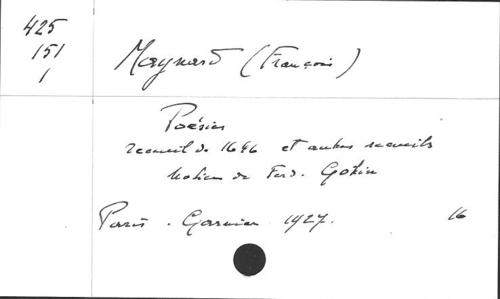 425
151
1
Maynard (François)
Poésies
recueil de 1646 et autres recueils
Notice de Ferd. Gohin
Paris. Garnier 1927.
16